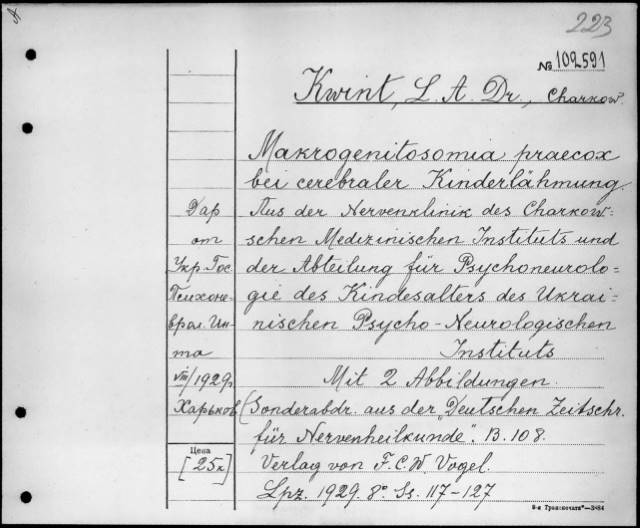 223
№ 102591
Kwint, L. A. Dr., Charkow.
Makrogenitosomia praecox
bei cerebraler Kinderlähmung.
Aus der Nervenklinik des Charkow=
schen Medizinischen Instituts und
der Abteilung für Psychoneurolo=
gie des Kindesalters des Ukrai=
nischen Psycho-Neurologischen
Instituts
Mit 2 Abbildungen.
(Sonderabdr. aus der „Deutschen Zeitschr.
für Nervenheilkunde". B. 108.
Verlag von F. C. W. Vogel.
Lpz. 1929. 8° Ss. 117-127
Дар
от
Укр. Гос
Психоне-
врол. Ин-
та
VIII/1929г
Харьков
Цена
[25к]